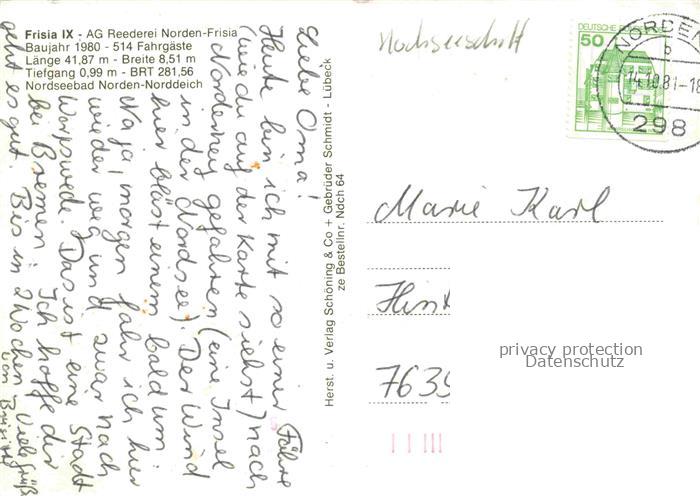 Frisia IX - AG Reederei Norden-Frisia
Baujahr 1980 - 514 Fahrgäste
Länge 41,87 m - Breite 8,51 m
Tiefgang 0,99 m - BRT 281,56
Nordseebad Norden-Norddeich
Liebe Oma!
Heute bin ich mit so einer Fähre
(wie du auf der Karte siehst) nach
Norderney gefahren (eine Insel
in der Nordsee). Der Wind
hier bläst einem bald um
Naja, morgen fahr ich hier
wieder weg und zwar nach
Worpswede. Das ist eine Stadt
bei Bremen. Ich hoffe dir
geht es gut. Bis in 2 Wochen Viele Grüße
von
Herst. u. Verlag Schöning & Co + Gebrüder Schmidt - Lübeck
ze Bestellnr. Ndch 64
Hochseeschiff
DEUTSCHE
50
NORDEN
b
14.10.81-18
298
Marie Karl
Hint
7639
privacy protection
Datenschutz